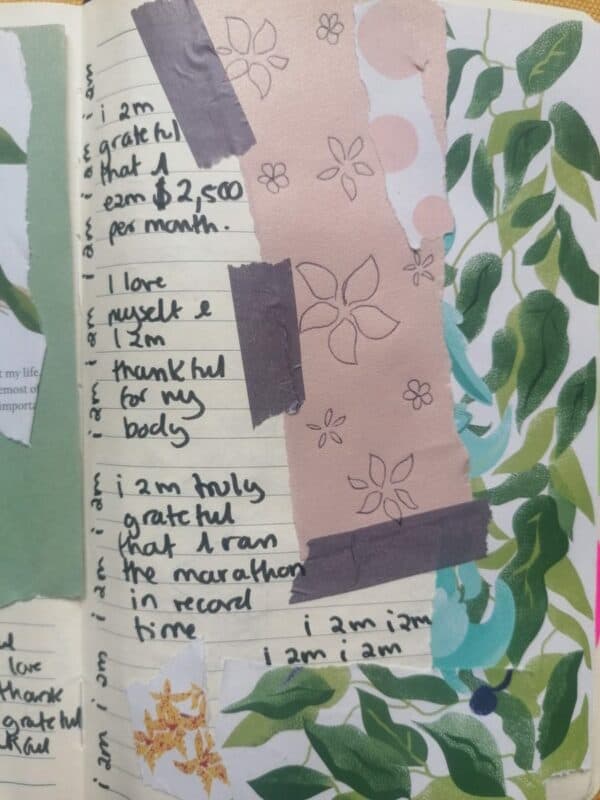 i am
grateful
that I
earn $2,500
per month.
I love
myself &
I am
thankful
for my
body
i am truly
grateful
that I ran
the marathon
in record
time
i am i am
i am i am
i am i am i am i am i am i am i am i am
t my life,
emost of
importa
love
thank
grateful